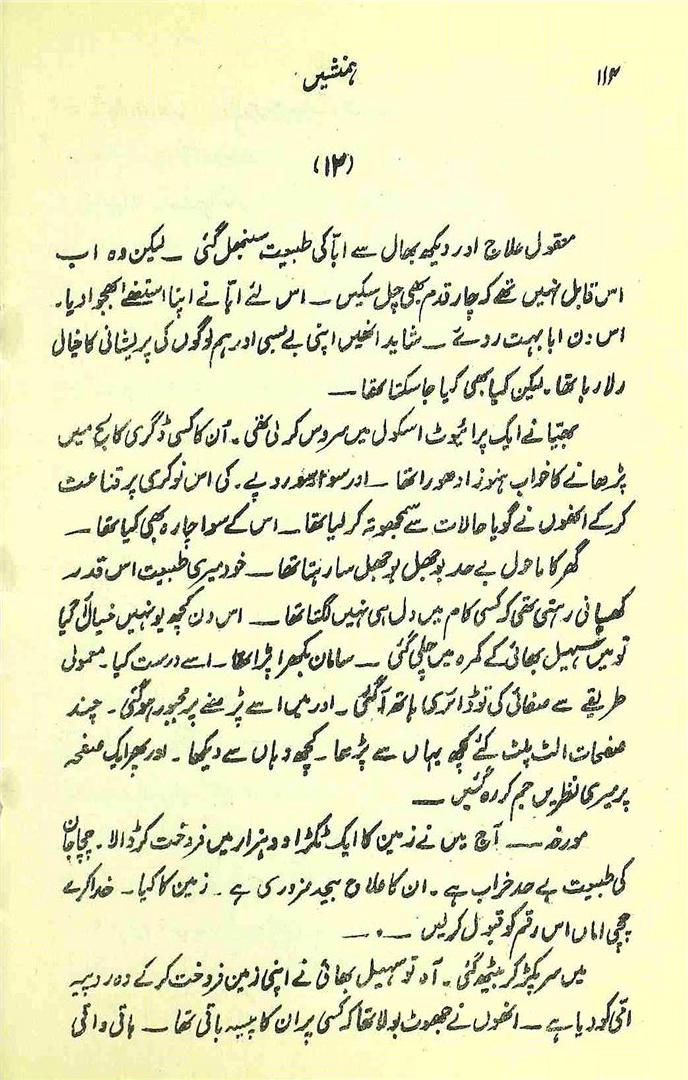 ۱۱۴
ہمنشیں
(۱۲)
معقول علاج اور دیکھ بھال سے ابّا کی طبیعت سنبھل گئی ـ لیکن وہ اب
اس قابل نہیں تھے کہ چار قدم بھی چل سکیں ـ اس لئے ابّا نے اپنا استعفےٰ بھجوا دیا۔
اس دن ابا بہت روئے ـ شاید انھیں اپنی بے بسی اور ہم لوگوں کی پریشانی کا خیال
رلا رہا تھا۔ لیکن کیا بھی کیا جا سکتا تھا ـ
بھیّا نے ایک پرائیوٹ اسکول میں سروس کرلی تھی۔ اُن کا کسی ڈگری کالج میں
پڑھانے کا خواب ہنوز ادھورا تھا ـ اور سو روپے۔ کی اس نوکری پر قناعت
کر کے انھوں نے گویا حالات سے سمجھوتہ کر لیا تھا ـ اس کے سوا چارہ بھی کیا تھا ـ
گھر کا ماحول بے حد بوجھل بوجھل سا رہتا تھا ـ خود میری طبیعت اس قدر
کھسیانی رہتی تھی کہ کسی کام میں دل ہی نہیں لگتا تھا ـ اس دن کچھ یونہیں خیال آ گیا
تو میں سہیل بھائی کے کمرہ میں چلی گئی ـ سامان بکھرا پڑا تھا۔ اسے درست کیا۔ معمولی
طریقے سے صفائی کی تو ڈائری ہاتھ آ گئی۔ اور میں اسے پڑھنے پر مجبور ہو گئی۔ چند
صفحات الٹ پلٹ کئے کچھ یہاں سے پڑھا۔ کچھ وہاں سے دیکھا۔ اور پھر ایک صفحہ
پر میری نظریں جم کر رہ گئیں ـ
مورخہ ـ آج میں نے زمین کا ایک ٹکڑا دو ہزار میں فروخت کر ڈالا۔ چچا جان
کی طبیعت بے حد خراب ہے۔ ان کا علاج بیحد ضروری ہے۔ زمین کا کیا۔ خدا کرے
چچی اماں اس رقم کو قبول کر لیں ـ . ـ
میں سر پکڑ کر بیٹھ گئی۔ آہ تو سہیل بھائی نے اپنی زمین فروخت کر کے وہ روپیہ
امّی کو دیا ہے ـ انھوں نے جھوٹ بولا تھا کہ کسی پر ان کا پیسہ باقی تھا ـ باقی واقی